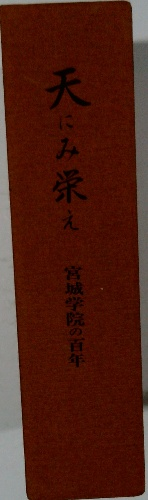 天にみ栄え
宮城学院の百年